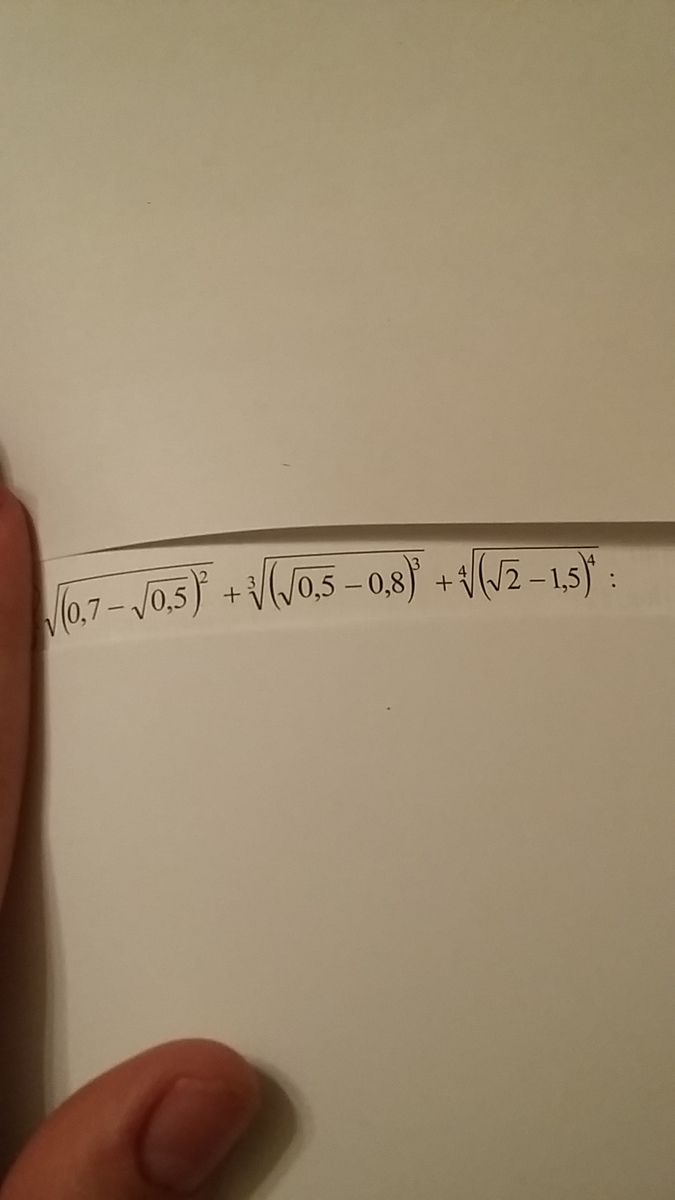 √(0,7 − √0,5)² + ∛(√0,5 − 0,8)³ + ∜(√2 − 1,5)⁴ :